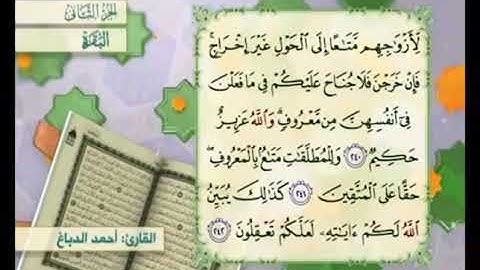 الجزء الثاني
البقرة
لِّأَزْوَٰجِهِم مَّتَٰعًا إِلَى ٱلْحَوْلِ غَيْرَ إِخْرَاجٍ ۚ
فَإِنْ خَرَجْنَ فَلَا جُنَاحَ عَلَيْكُمْ فِى مَا فَعَلْنَ
فِىٓ أَنفُسِهِنَّ مِن مَّعْرُوفٍ ۗ وَٱللَّهُ عَزِيزٌ
حَكِيمٌ ٢٤٠ وَلِلْمُطَلَّقَٰتِ مَتَٰعٌۢ بِٱلْمَعْرُوفِ ۖ
حَقًّا عَلَى ٱلْمُتَّقِينَ ٢٤١ كَذَٰلِكَ يُبَيِّنُ
ٱللَّهُ لَكُمْ ءَايَٰتِهِۦ لَعَلَّكُمْ تَعْقِلُونَ ٢٤٢
القارئ: أحمد الدباغ